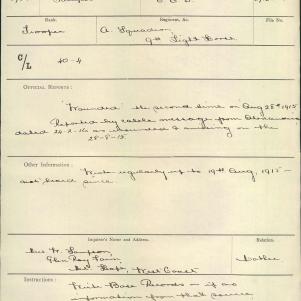 Rank.
Regiment, &c.
File No.
Trooper
A. Squadron
9th Light Horse
C/L
40-4
OFFICIAL REPORTS :
Wounded the second time on Aug 28th 1915
Reported by cable message from Alexandria
dated 24-2-16 as wounded & missing on the
28-8-15
Other Information :
Wrote regularly up to 19th Aug, 1915 -
not heard since.
Inquirer's Name and Address.
Relation.
Glen Roy Farm
West Coast
Instructions :
Write Base Records - if no
information from that source